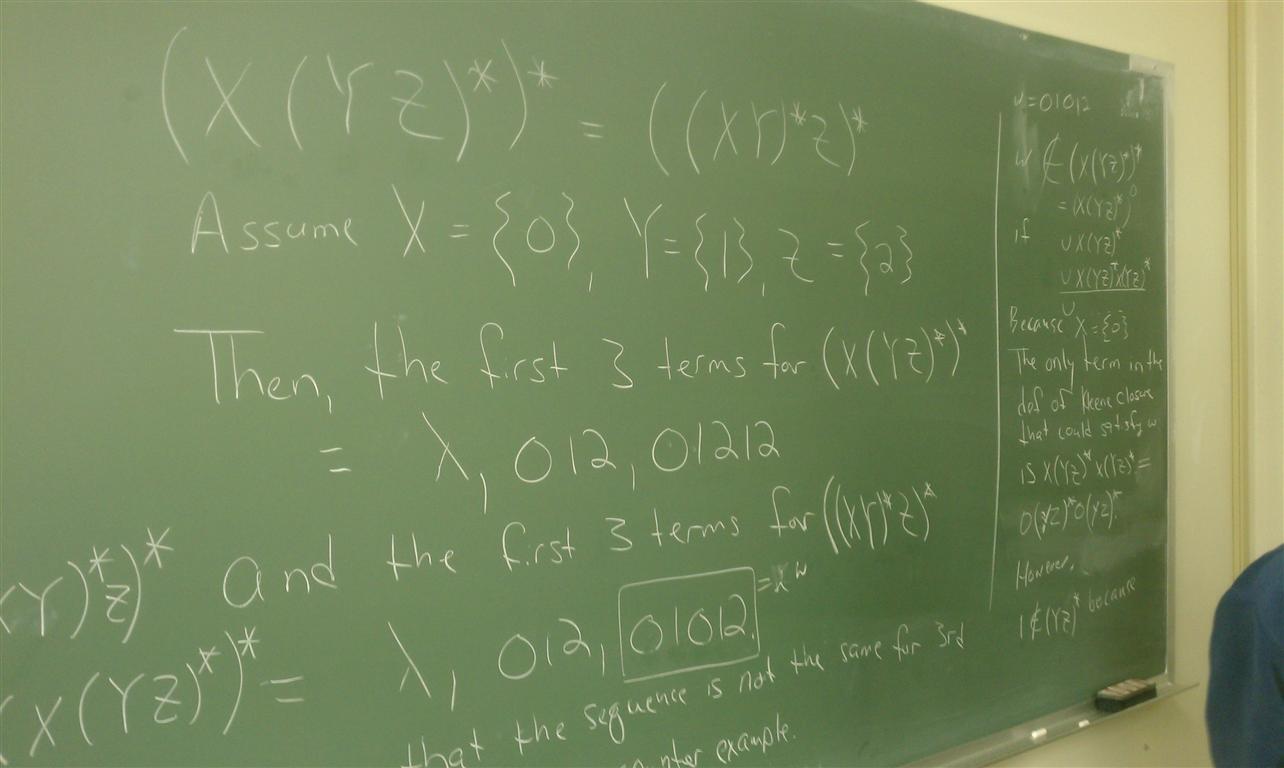 (X(YZ)*)* = ((XY)*Z)*
Assume X = {0}, Y={1}, Z = {2}
Then, the first 3 terms for (X(YZ)*)*
= λ, 012, 01212
and the first 3 terms for ((XY)*Z)*
λ, 012, 01012. = w
that the sequence is not the same for 3rd
example.
(Y)*Z)*
(X(YZ)*)* =
w=01012
w ∉ (X(YZ)*)*
= (X(YZ)*)⁰
if ∪ X(YZ)*
∪ X(YZ)*X(YZ)*
∪
Because X = {0}
The only term in the
def of Kleene closure
that could satisfy w
is X(YZ)*X(YZ)* =
0(YZ)*0(YZ)*.
However,
1 ∉ (YZ)* because